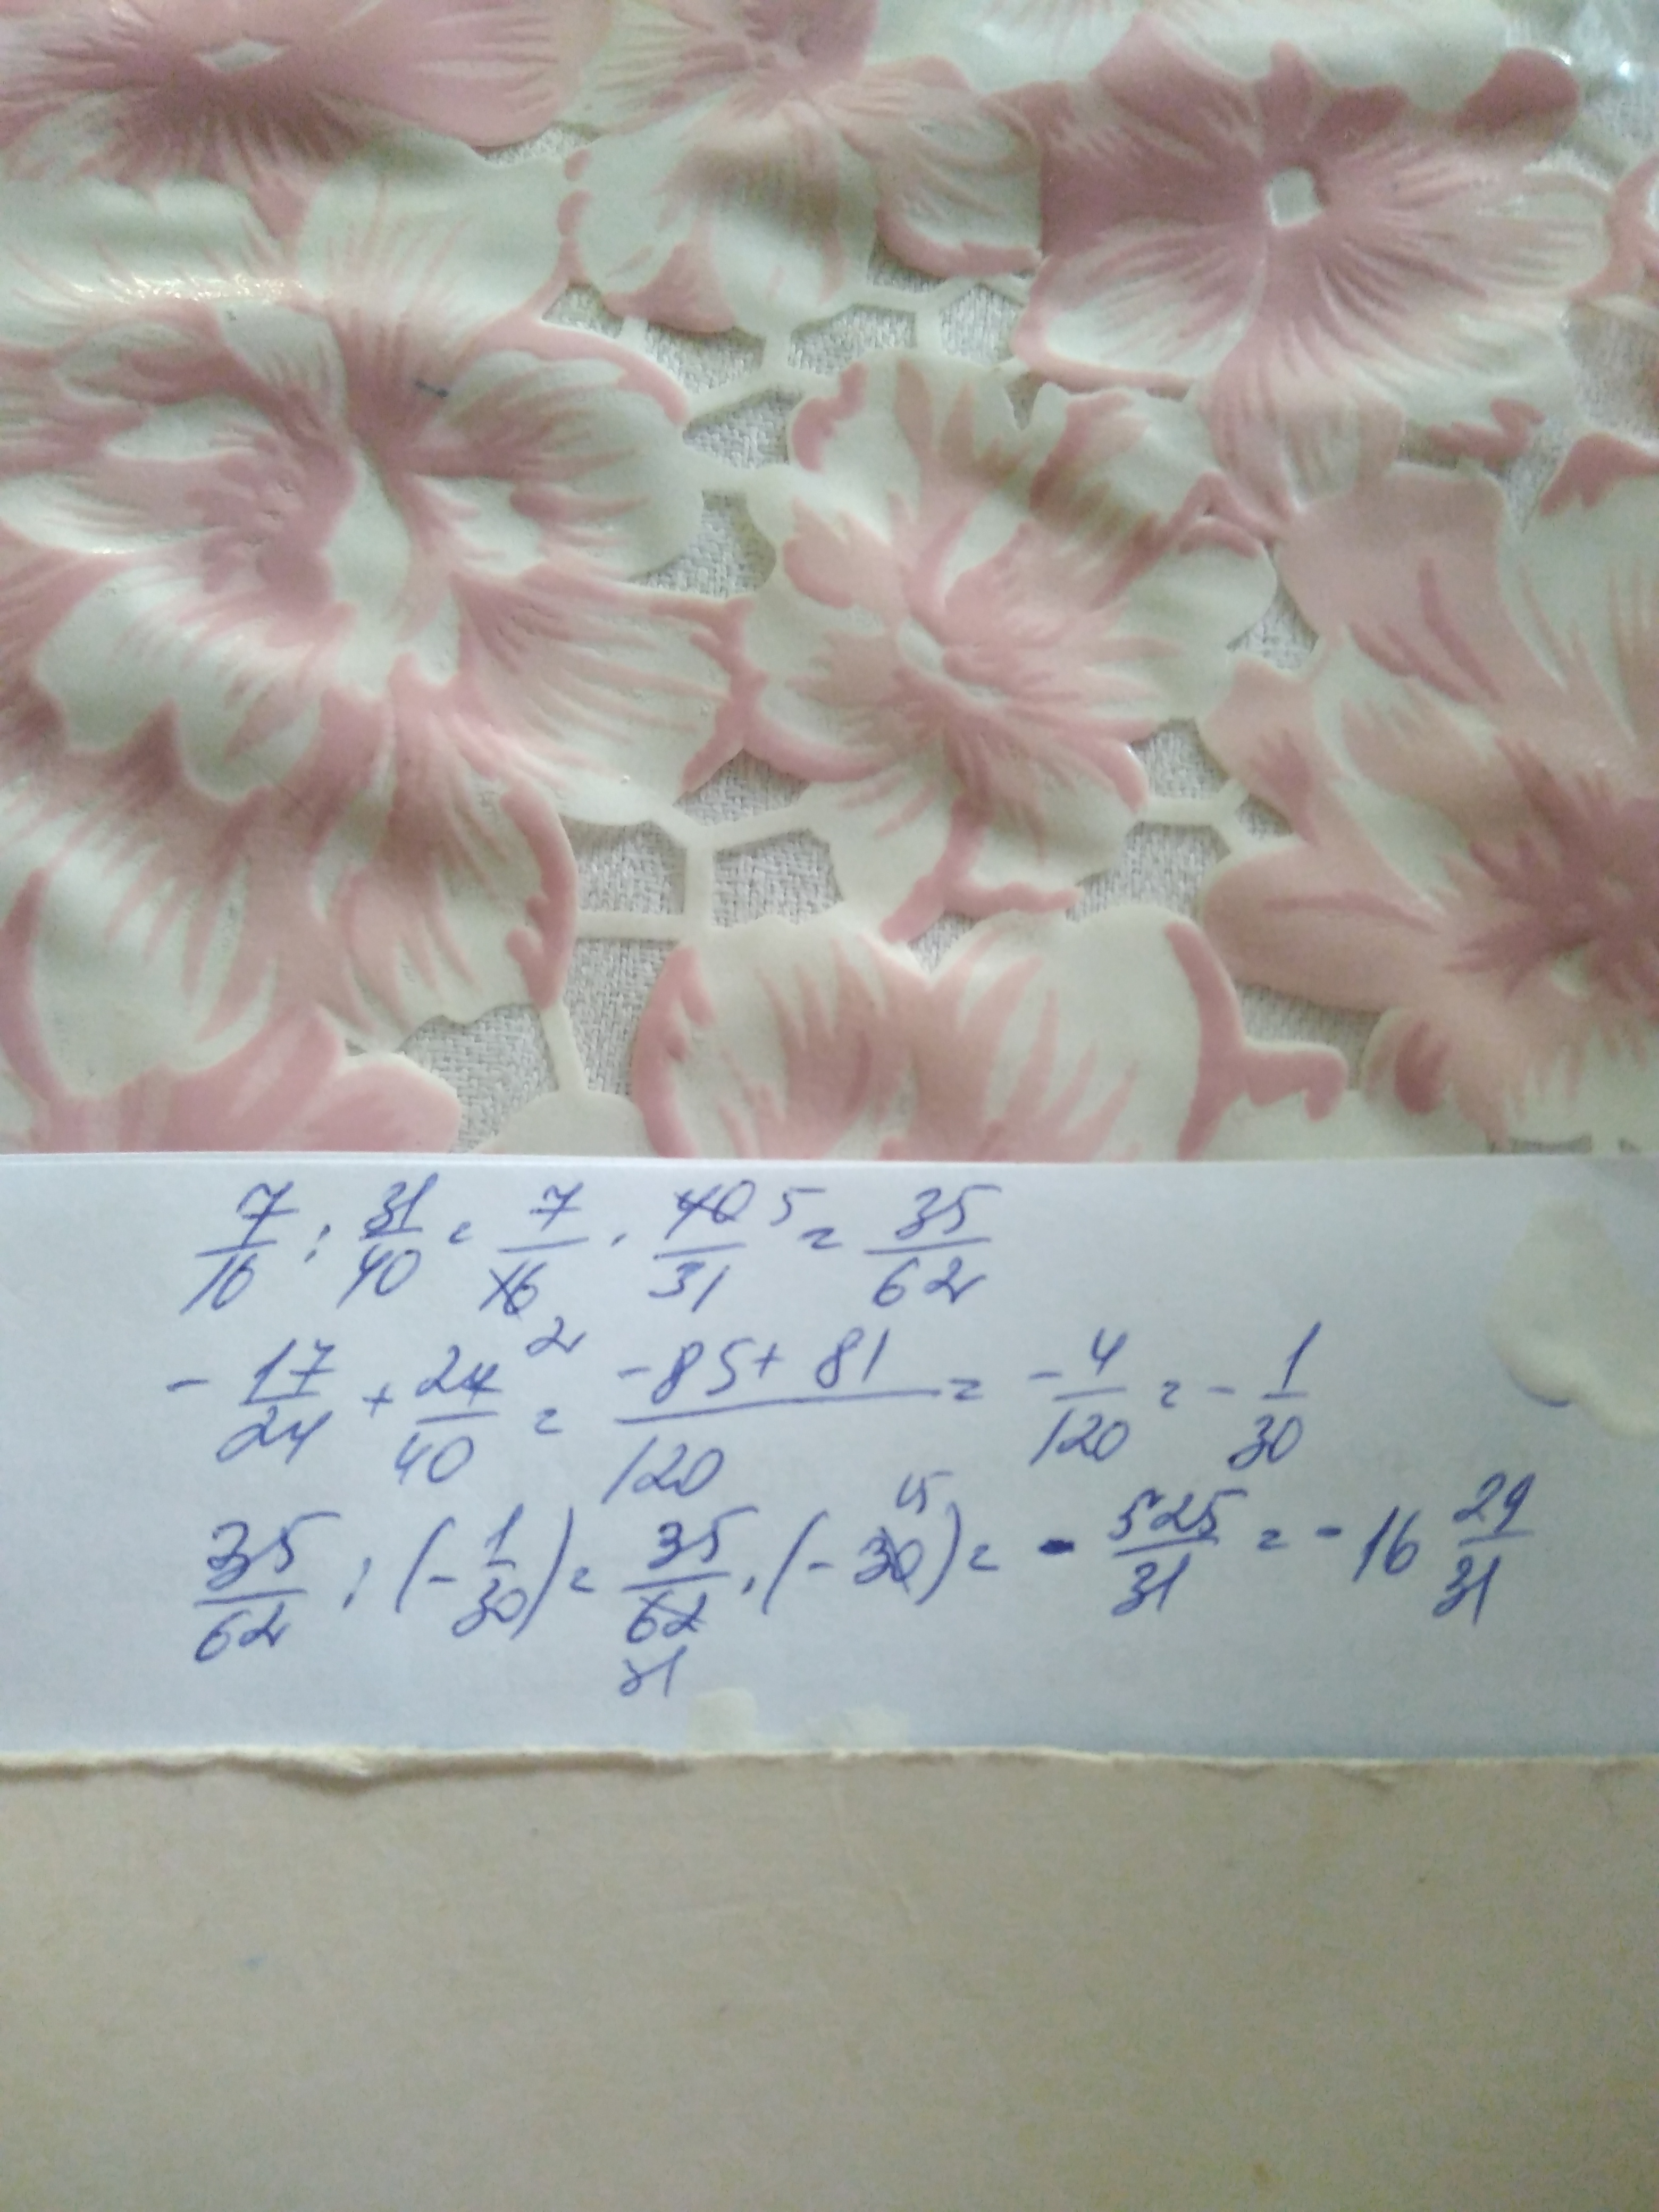 7/16 : 31/40 = 7/16 2 · 40 5/31 = 35/62
- 17/24 + 27/40 = -85+81/120 = - 4/120 = - 1/30
35/62 : (- 1/30) = 35/62 31 · (- 30 15) = - 525/31 = - 16 29/31